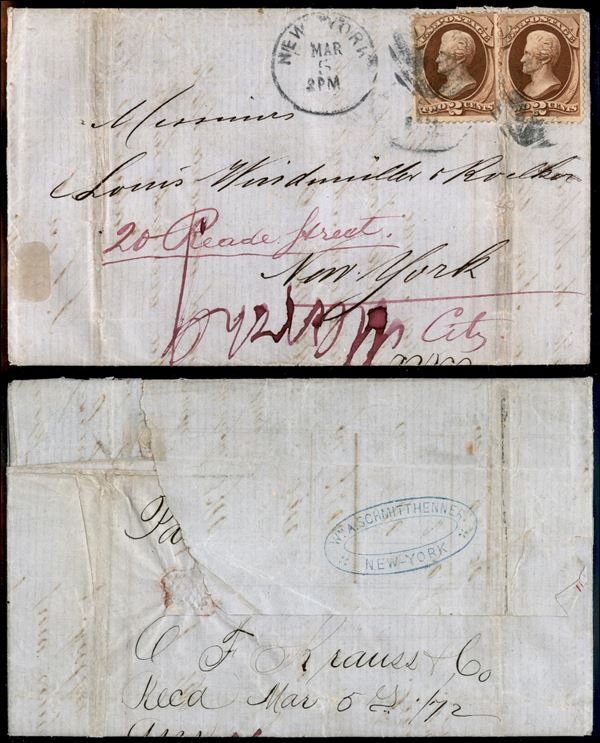 NEW-YORK
MAR
5
2PM
U.S. POSTAGE
TWO 2 CENTS
U.S. POSTAGE
TWO 2 CENTS
Messieurs
Louis Windmüller & Roelker
20 Reade Street.
New York
City
Pa
WM A. SCHMITTHENNER
NEW-YORK
C F Krauss & Co
Recd Mar 5 /72